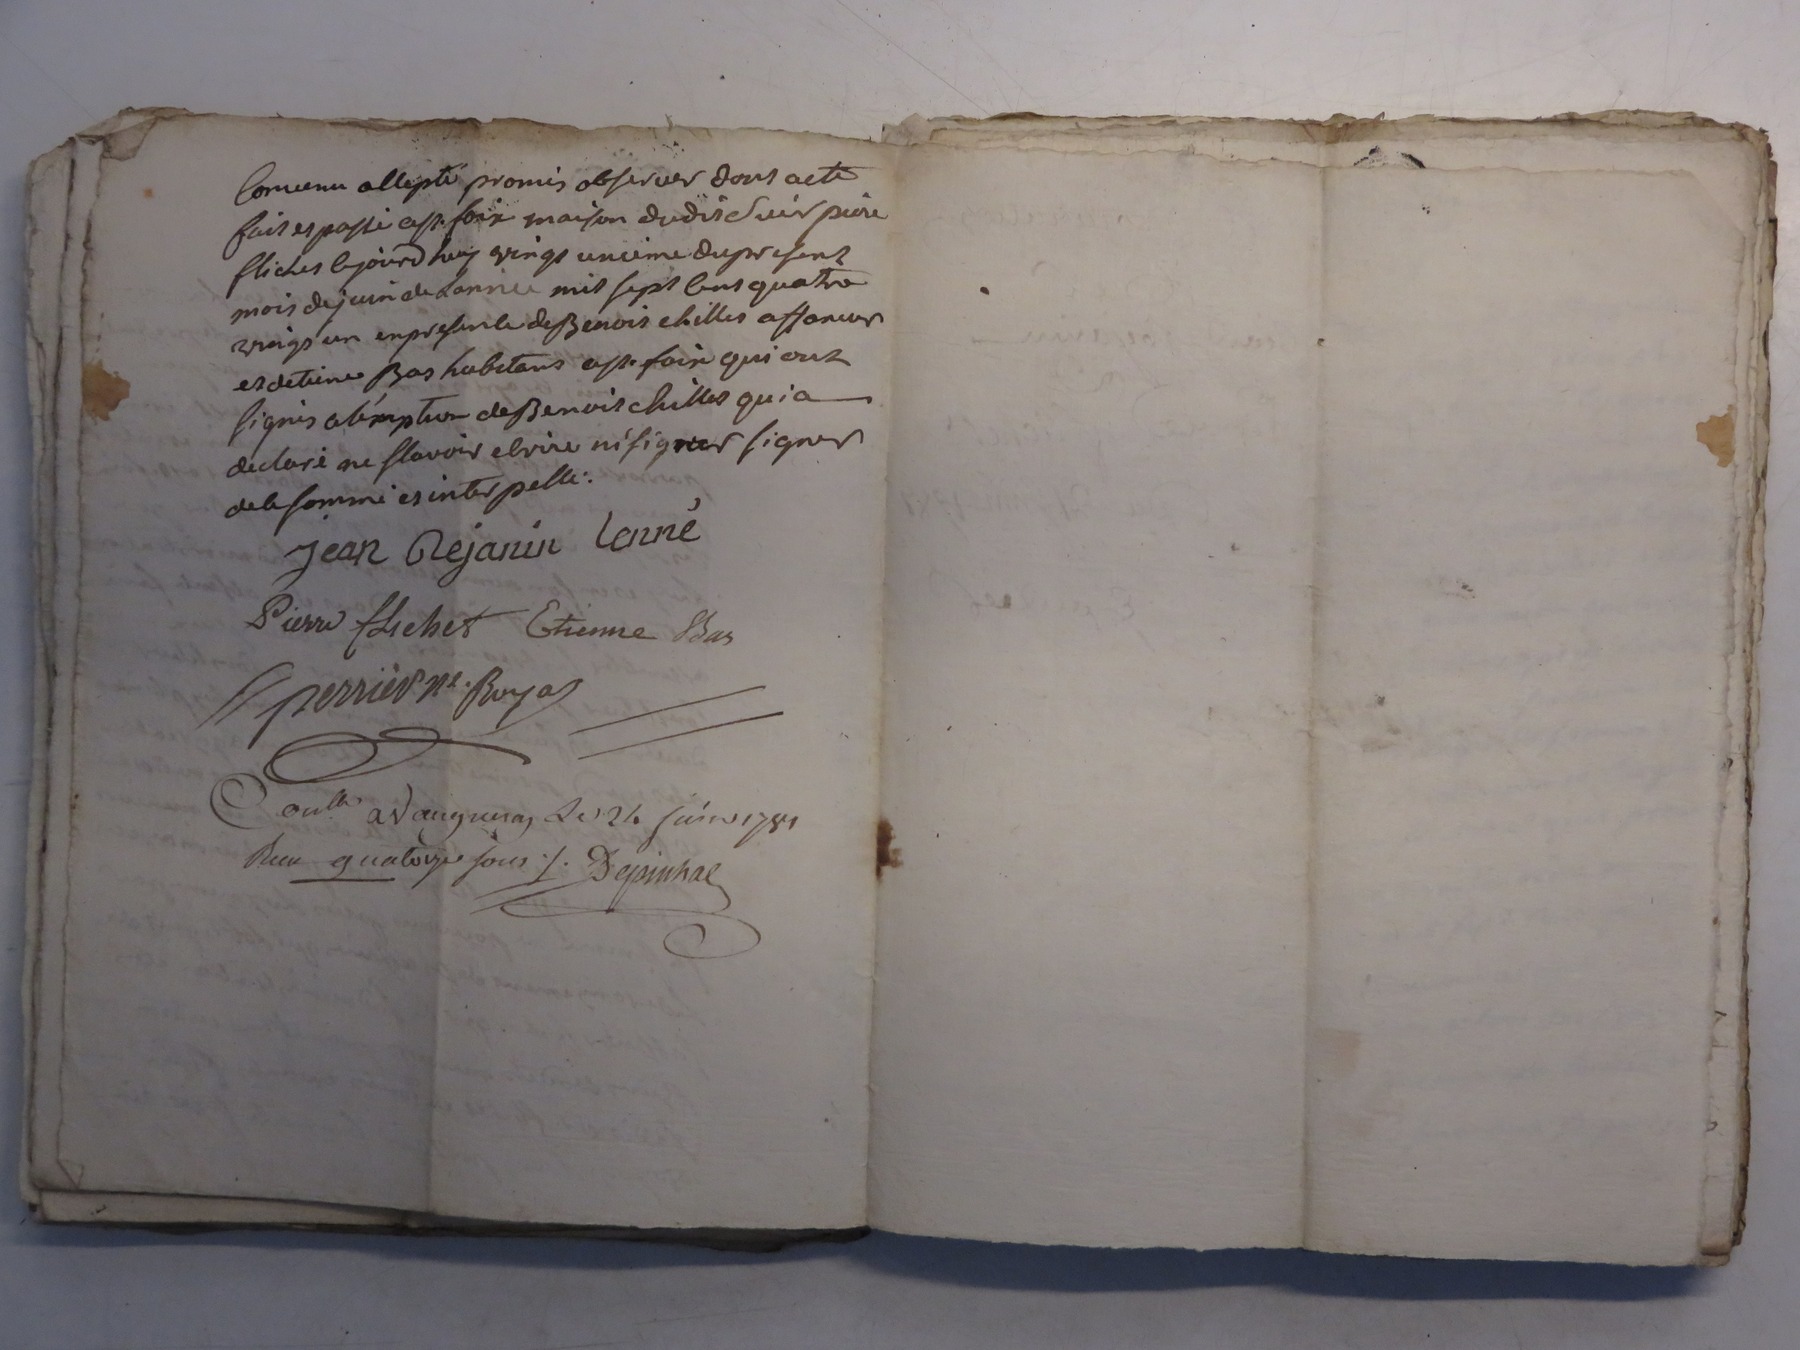 Convenu accepté promis observer dont acte
fait et passé a st. foix maison dudit Sieur piere
flichet lejourd'huy vingt unieme du present
mois de juin de Lannée mil sept cent quatre
vingt un en presence de Benoit chilles affaneur
et detiene Bas habitans a st. foix qui ont
signés a lexeption de Benoit chilles qui a
declaré ne scavoir ecrire ni signer signer
de ce sommé et interpellé.
Jean Rejanin
Pierre flichet Etienne Bas
perrier ne. Royal
Conlle a Vaugneray Le 24 juin 1781
Recu quatorze sous ./. Depinhac